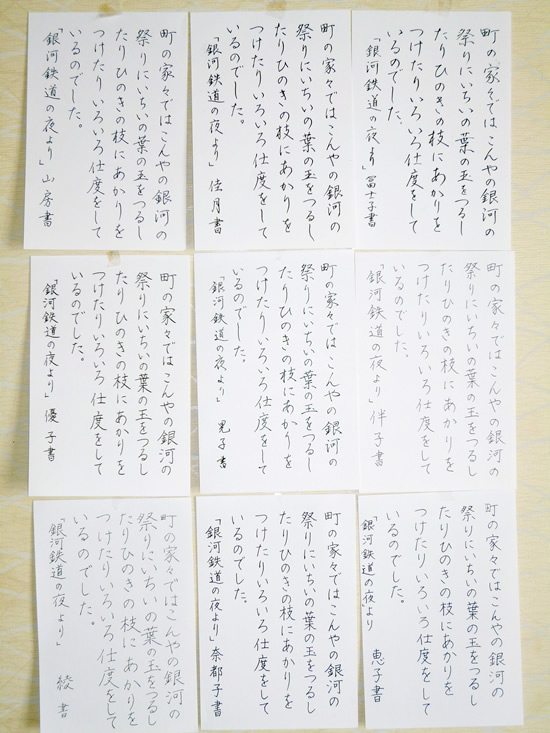 町の家々ではこんやの銀河の
祭りにいちいの葉の玉をつるし
たりひのきの枝にあかりを
つけたりいろいろ仕度をして
いるのでした。
「銀河鉄道の夜より」冨士子書
町の家々ではこんやの銀河の
祭りにいちいの葉の玉をつるし
たりひのきの枝にあかりを
つけたりいろいろ仕度をして
いるのでした。
「銀河鉄道の夜より」佳月書
町の家々ではこんやの銀河の
祭りにいちいの葉の玉をつるし
たりひのきの枝にあかりを
つけたりいろいろ仕度をして
いるのでした。
「銀河鉄道の夜より」山房書
町の家々ではこんやの銀河の
祭りにいちいの葉の玉をつるし
たりひのきの枝にあかりを
つけたりいろいろ仕度をして
いるのでした。
「銀河鉄道の夜より」伴子書
町の家々ではこんやの銀河の
祭りにいちいの葉の玉をつるし
たりひのきの枝にあかりを
つけたりいろいろ仕度をして
いるのでした。
「銀河鉄道の夜より」
町の家々ではこんやの銀河の
祭りにいちいの葉の玉をつるし
たりひのきの枝にあかりを
つけたりいろいろ仕度をして
いるのでした。
「銀河鉄道の夜より」優子書
町の家々ではこんやの銀河の
祭りにいちいの葉の玉をつるし
たりひのきの枝にあかりを
つけたりいろいろ仕度をして
いるのでした。
「銀河鉄道の夜」より 恵子書
町の家々ではこんやの銀河の
祭りにいちいの葉の玉をつるし
たりひのきの枝にあかりを
つけたりいろいろ仕度をして
いるのでした。
「銀河鉄道の夜より」奈都子書
町の家々ではこんやの銀河の
祭りにいちいの葉の玉をつるし
たりひのきの枝にあかりを
つけたりいろいろ仕度をして
いるのでした。
「銀河鉄道の夜より」 綾 書